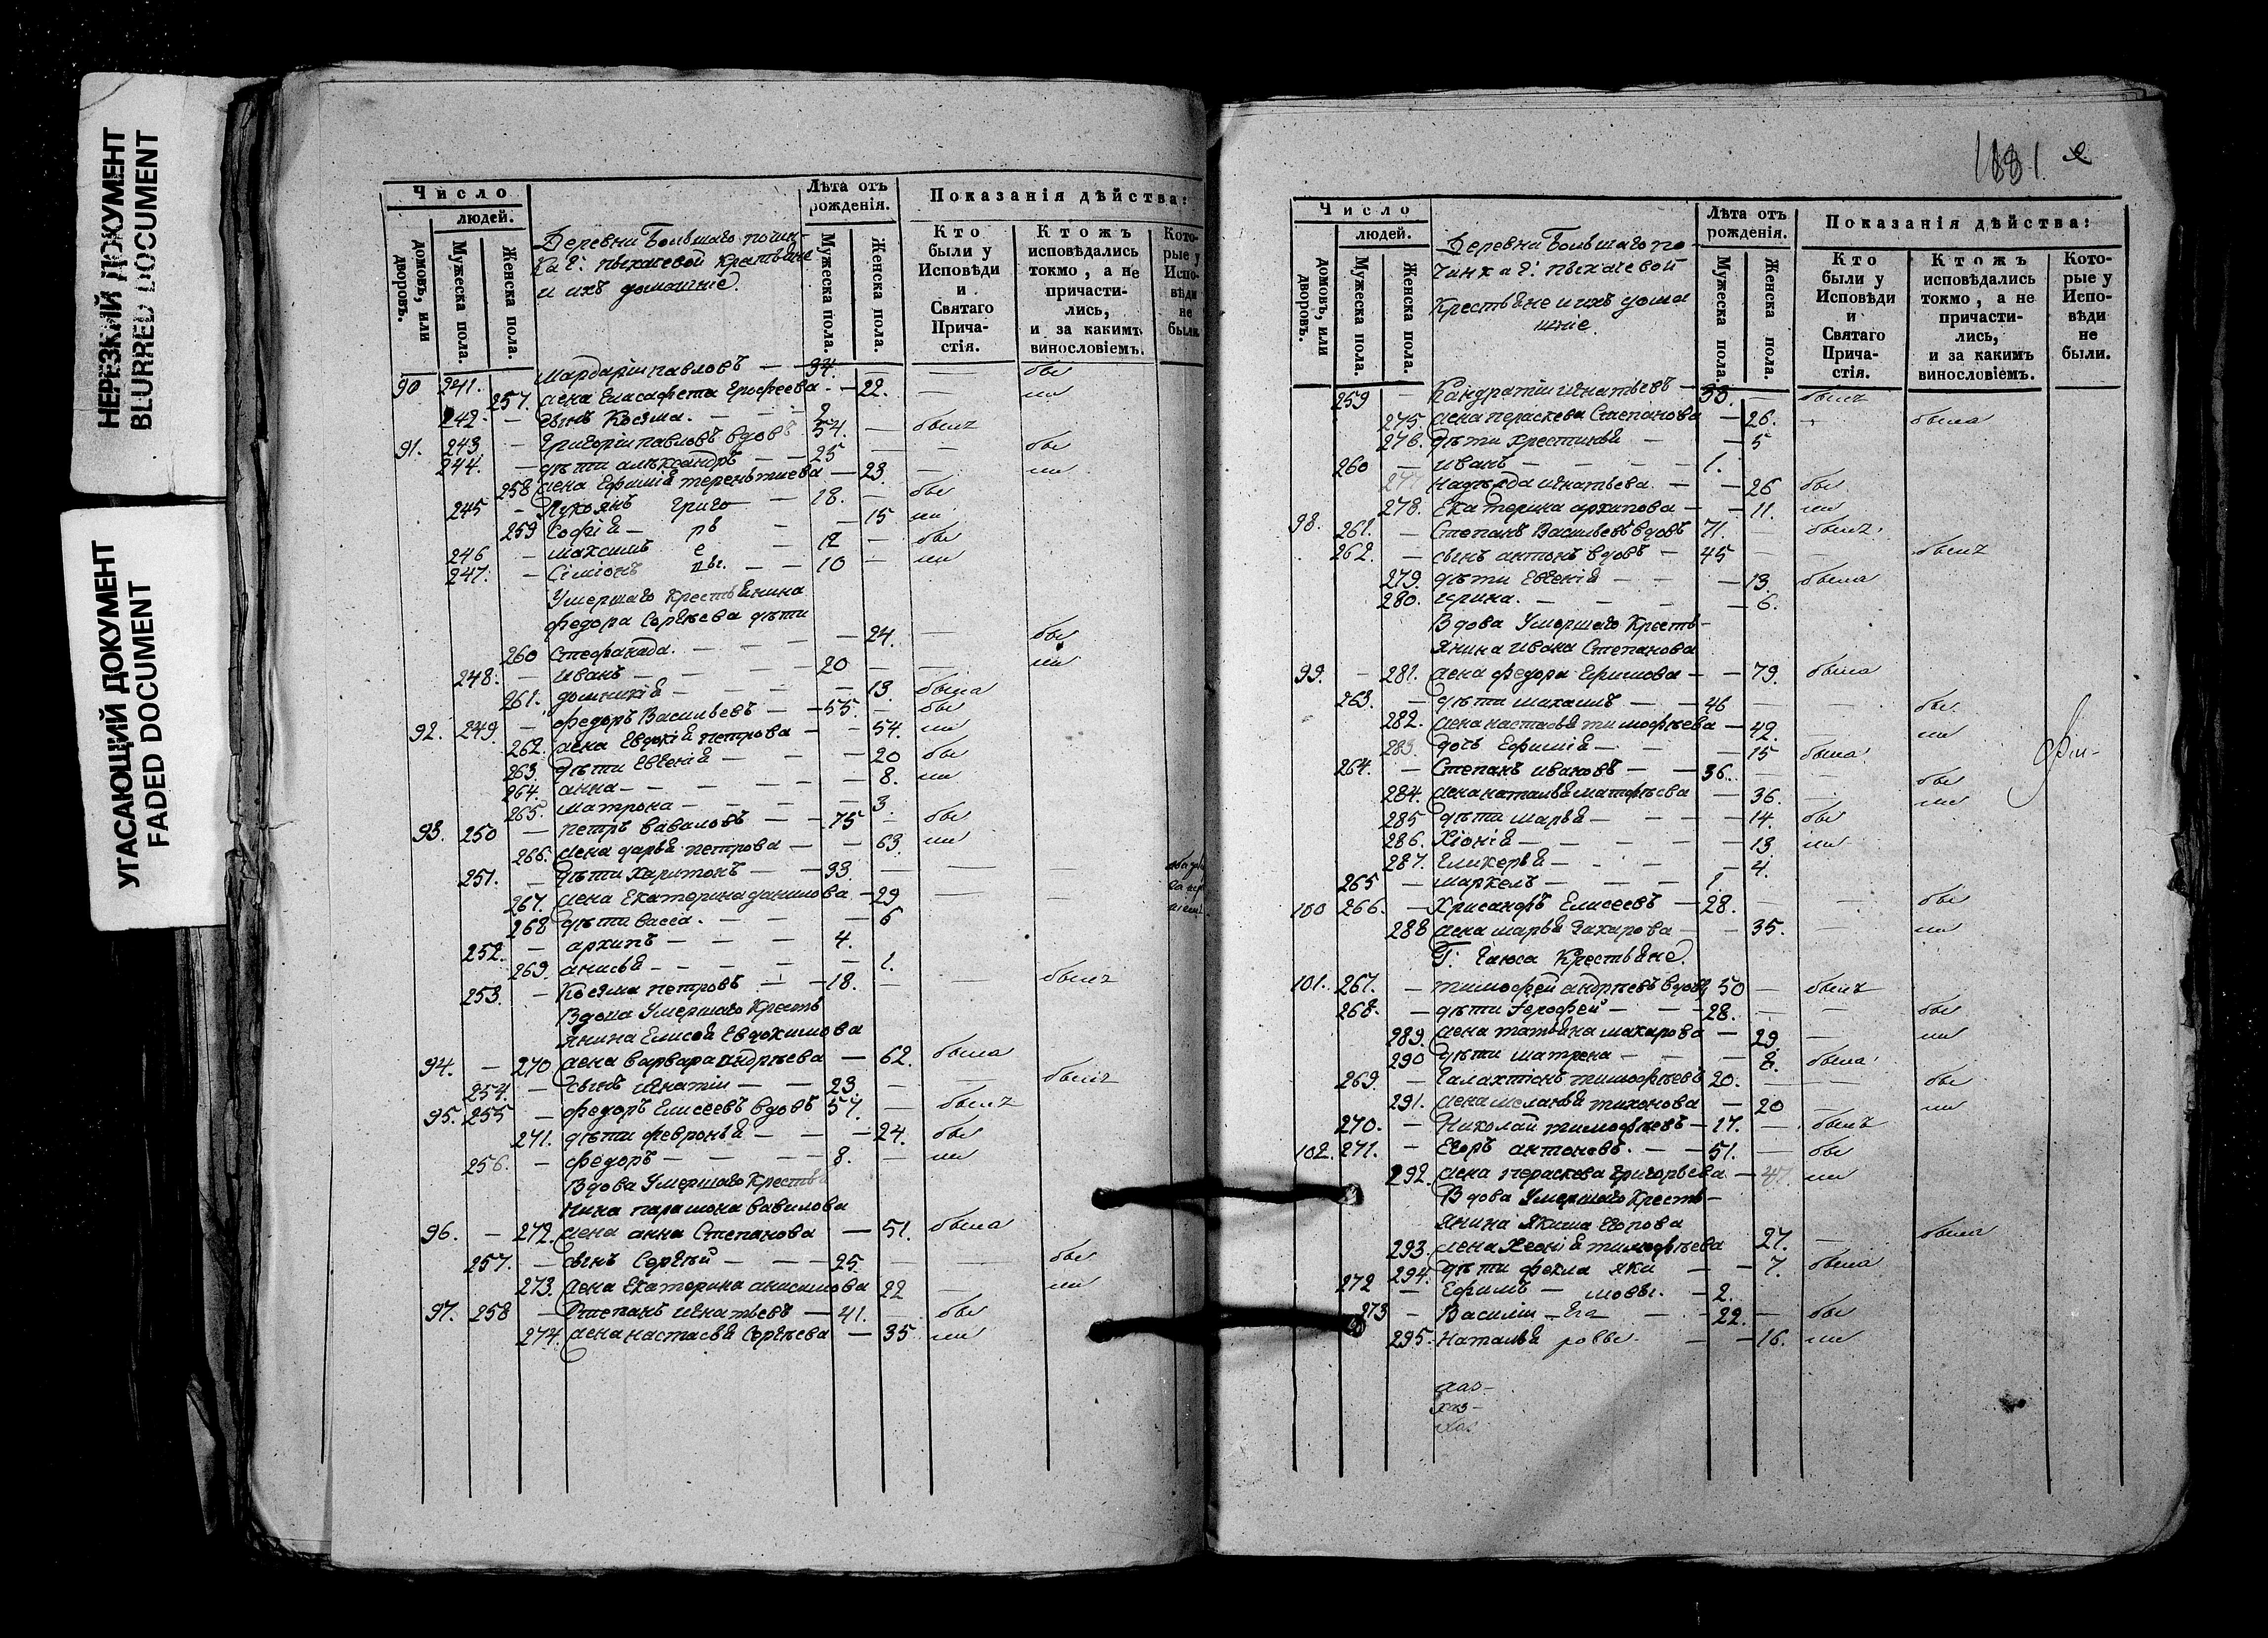 НЕРЕЗКИЙ ДОКУМЕНТ
BLURRED DOCUMENT
УГАСАЮЩИЙ ДОКУМЕНТ
FADED DOCUMENT
Число
людей.
домовъ, или дворовъ.
Мужеска пола.
Женска пола.
Деревни Большаго почин-
ка Г: Пыхачевой Крестьяне
и ихъ домашніе.
Лѣта отъ рожденія.
Мужеска пола.
Женска пола.
Показанія дѣйства:
Кто были у Исповѣди и Святаго Прича-стія.
Ктожъ исповѣдались токмо, а не причасти-лись, и за какимъ винословіемъ.
Кото-рые у Испо-вѣди не были.
90 241. Мардарій павловъ — 34. — — бы
257. жена Елисафета Ерофеева — 22. ли
242. — сынъ Козма. — 2
91. 243 — Григорій павловъ вдовъ 54. — былъ
244. — дѣти алѣксандръ — 25 — — бы
258 жена Ефимія терентиева — 23. — ли
245 — Лукоянъ Григо — 18. — бы
259 Софія — рь — 15 ли
246 — Максимъ е — 12 — бы
247. — Сіміонъ вы. — 10 — ли
Умершаго Крестьянина
Федора Сергѣева дѣти
260 Стефанида. — 24. — бы
248. — Иванъ — 20 — — ли
261. домникія — 13 была
92. 249. — Федоръ Васильевъ — 55. — бы
262. жена Евдокія петрова — 54. ли
263. дѣти Евгенія — 20 бы
264. анна — 8. ли
265. матрона — 3.
93. 250 — петръ вавиловъ — 75 — бы
266. жена дарья петрова — 63. ли
251. — дѣти харитонъ — 33. — — —
267. жена Екатерина данилова — 29 — —
268 дѣти васса. — 6
252. — архипъ — 4.
269. анисья — 1.
253. — Козма петровъ — 18. — — былъ
Вдова Умершаго Кресть
янина Елисея Евдокимова
94. — 270 жена варвара андрѣева — 62. была
254. — сынъ игнатіи — 23. — — былъ
95. 255 — федоръ Елисеевъ вдовъ 57. — былъ
271. дѣти февронья — 24. бы
256. — федоръ — 8. — ли
Вдова Умершаго Кресть
янина парамона вавилова
96. — 272. жена анна Степанова — 51. была
257. — сынъ Сергѣй — 25. — — бы
273. жена Екатерина анисимова 22 — ли
97. 258 — Степанъ игнатьевъ — 41. — бы
274. жена настасья Сергѣева — 35 ли
1881.
Число
людей.
домовъ, или дворовъ.
Мужеска пола.
Женска пола.
Деревни Большаго по-
чинка Г: Пыхачевой
Крестьяне и ихъ дома
шніе.
Лѣта отъ рожденія.
Мужеска пола.
Женска пола.
Показанія дѣйства:
Кто были у Исповѣди и Святаго Прича-стія.
Ктожъ исповѣдались токмо, а не причасти-лись, и за какимъ винословіемъ.
Кото-рые у Испо-вѣди не были.
259 — Кандратіи игнатьевъ — 33. — былъ
275. жена пераскева Степанова — 26. — была
276. дѣти христинья — 5
260 — иванъ — 1.
277 надѣжда игнатьева. — 26 бы
278. Екатерина архипова — 11. ли
98. 261. — Степанъ Васильевъ вдовъ 71. — былъ.
262. — сынъ антонъ вдовъ — 45 — — былъ
279. дѣти Евгенія — 13 была
280. ирина. — 6.
Вдова Умершаго Кресть-
янина ивана Степанова
99. — 281. жена федора Ефимова — 79. была
263. — дѣти михаилъ — 46 — — бы
282. жена настасья тимофѣева — 42. — ли
283. дочь Ефимія — 15 была
264. — Степанъ ивановъ — 36. — — бы
284. жена наталья матфѣева — 36. — ли
285 дѣти марья — 14. бы
286. Хіонія — 13 ли
287. Гликерья — 4.
265 — маркелъ — 1.
100 266. — Хрисанфъ Елисеевъ — 28. — — бы
288 жена марья Захарова — 35. — ли
Г: Гаюса Крестьяне.
101. 267. — тимофей андрѣевъ вдовъ 50 — былъ
268. — дѣти Ерофей — 28. — — бы
289. жена татьяна макарова — 29. — ли
290 дѣти матрена — 8. была
269. — Галахтіонъ тимофѣевъ 20. — — бы
291. жена меланья тихонова — 20 — ли
270. — Николай тимофѣевъ — 17. — былъ
102. 271. — Егоръ антоновъ. — 51. — бы
292. жена пераскева Григорьева — ли
Вдова Умершаго Кресть-
янина Якима Егорова
293. жена Ксенія тимофѣева 27. — была
294. дѣти фекла Яки — 7. была
272 — Ефимъ — мовы. — 2.
273 — Василіи — Его — 22. — бы
295. Наталья ровы. — 16. ли